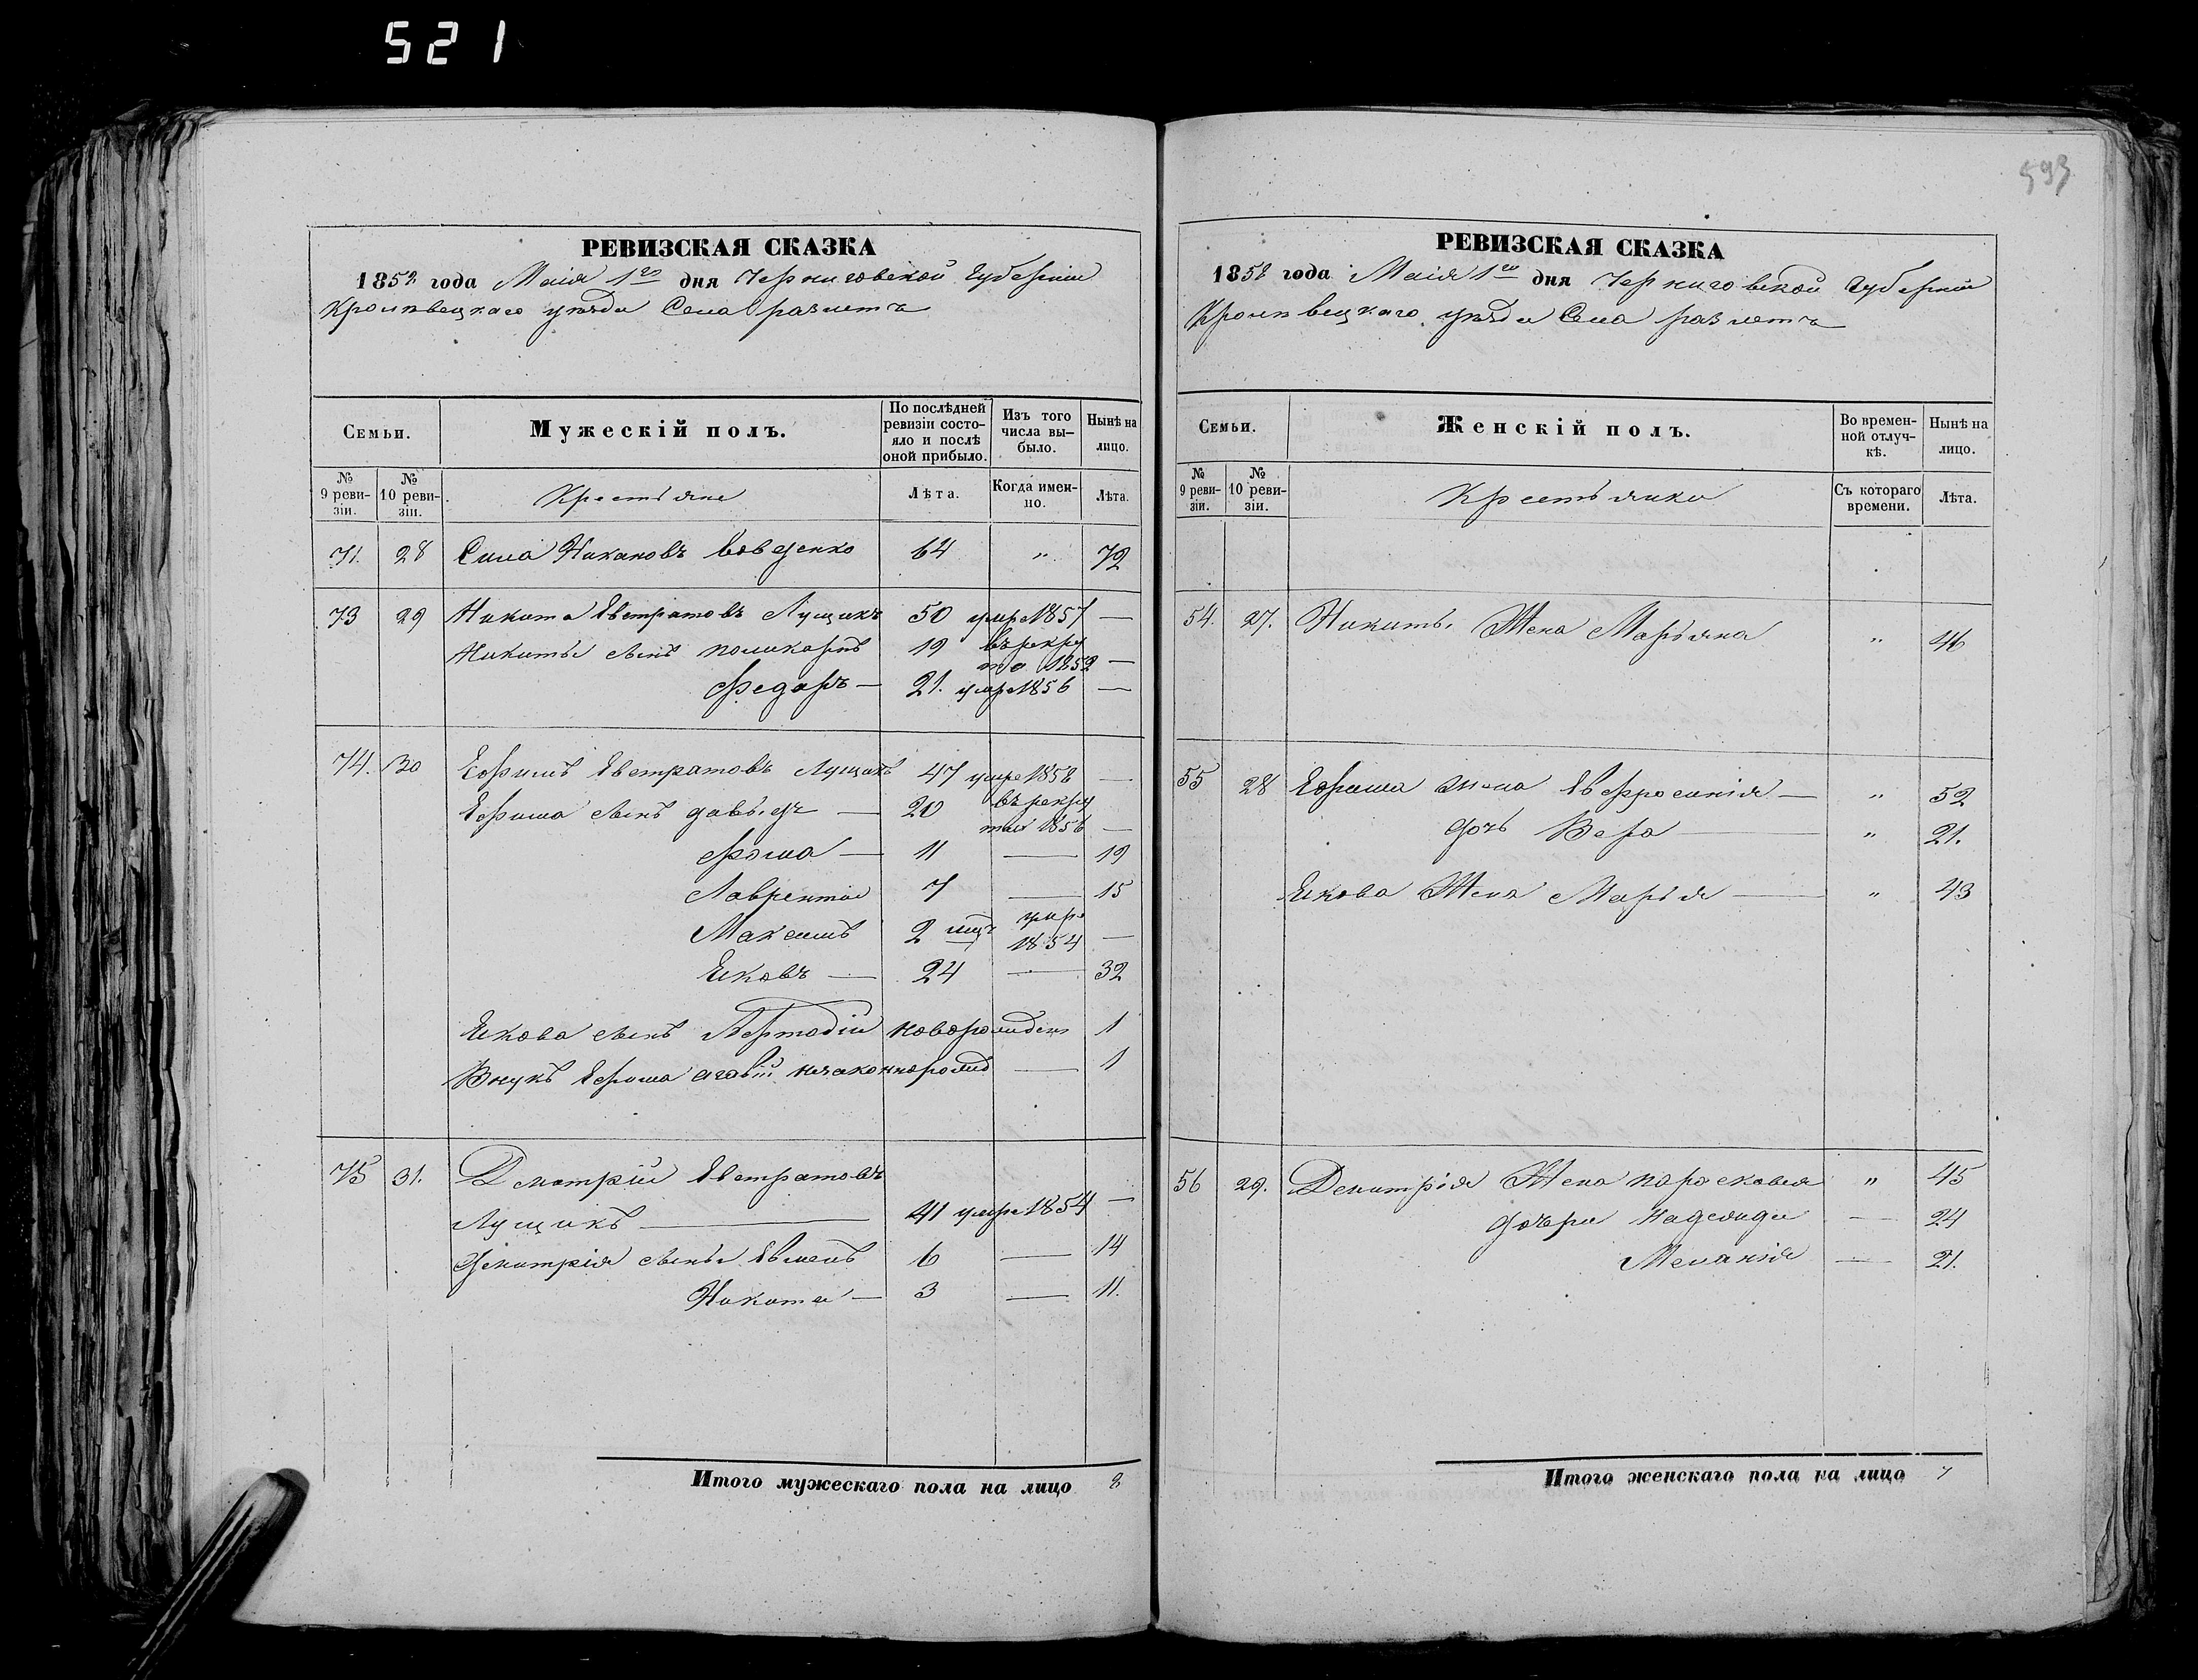 521
593
РЕВИЗСКАЯ СКАЗКА
1858 года Маія 1го дня Черниговской Губерніи
Кролѣвецкаго уѣзда Села
Семьи.
Мужескій полъ.
По послѣдней ревизіи состояло и послѣ оной прибыло.
Изъ того числа выбыло.
Нынѣ на лицо.
№ 9 ревизіи.
№ 10 ревизіи.
Крестьяне
Лѣта.
Когда именно.
Лѣта.
71. 28 Сила 64 „ 72
73 29 Никита Евстратовъ Лущикъ 50 умре 1857 —
Никиты сынъ Поликарпъ 19 въ рекру
то 1852 —
Федаръ — 21. умре 1856 —
74. 30 Ефимъ Евстратовъ Лущикъ 47 умре 1858 —
Ефима сынъ давыдъ — 20 въ рекру
ты 1856 —
Фома — 11 — 19
Лаврентій 7 — 15
Максимъ 2 умре
1854 —
Яковъ — 24 — 32
Якова сынъ новорожден 1
Внукъ Ефима незаконнорожд — 1
75 31. Дмитрій Евстратовъ
Лущикъ — 41 умре 1854 —
Дмитрія сыны 6 — 14
Никита — 3 — 11.
Итого мужескаго пола на лицо 8
РЕВИЗСКАЯ СКАЗКА
1858 года Маія 1го дня Черниговской Губерніи
Кролѣвецкаго уѣзда Села
Семьи.
Женскій полъ.
Во временной отлучкѣ.
Нынѣ на лицо.
№ 9 ревизіи.
№ 10 ревизіи.
Крестьянки
Съ котораго времени.
Лѣта.
54. 27. Никиты Жена Марьяна „ 46
55 28 Ефима жена Евфросинія — „ 52
дочь Вера — „ 21.
Якова Жена Марья — „ 43
56 29. Дмитрія Жена Парасковея „ 45
дочери Надежда — 24
Меланія — 21.
Итого женскаго пола на лицо 7